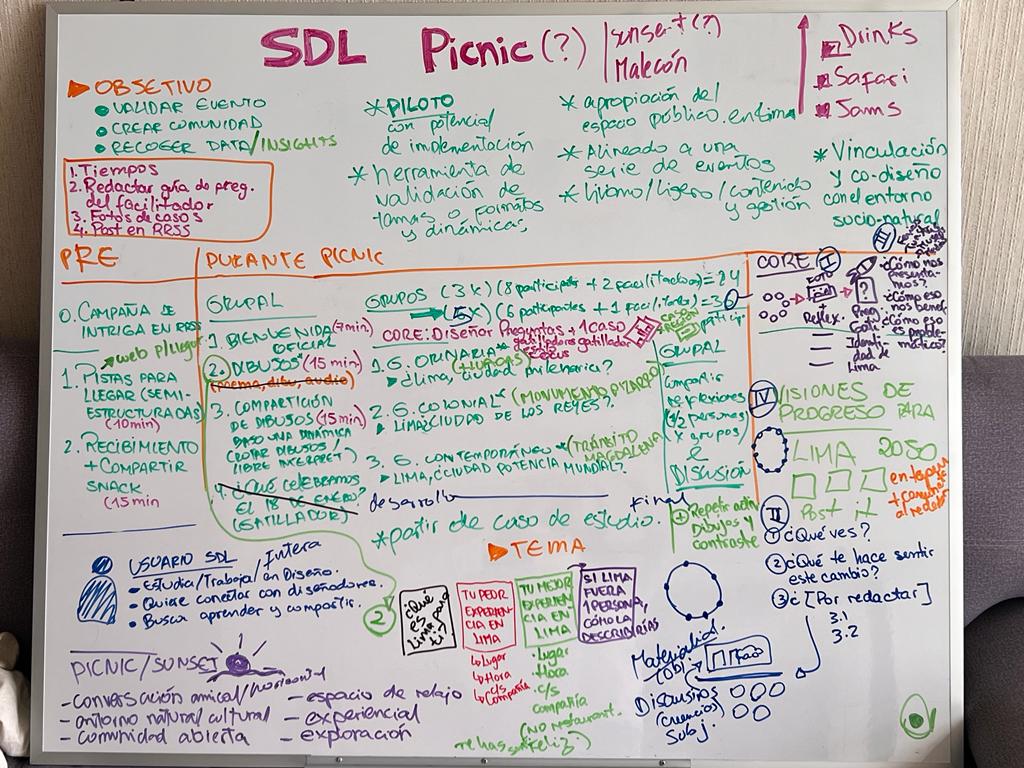 SDL Picnic (?)
Malecón
Drinks
Safari
Jams
OBJETIVO
• VALIDAR EVENTO
• CREAR COMUNIDAD
• RECOGER DATA/INSIGHTS
1. Tiempos
2. Redactar guía de preg. del facilitador
3. Fotos de casos
4. Post en RRSS
* PILOTO
con potencial
de implementación
* herramienta de
validación de
temas o formatos
y dinámicas
* apropiación del
espacio público en Lima
* Alineado a una
serie de eventos
* liviano/ligero/contenido
y gestión
* Vinculación
y co-diseño
con el entorno
socio-natural
PRE
0. CAMPAÑA DE
INTRIGA EN RRSS
web p/llegar
1. PISTAS PARA
LLEGAR (SEMI-
ESTRUCTURADAS)
(10min)
2. RECIBIMIENTO
+ COMPARTIR
SNACK
(15 min
DURANTE PICNIC
GRUPAL
1. BIENVENIDA (7min)
OFICIAL
2. DIBUJOS* (15 min)
(poema, dibu, audio)
3. COMPARTICIÓN
DE DIBUJOS (15min)
BAJO UNA DINÁMICA
(ROTAR DIBUJOS/
LIBRE INTERPRET)
4. ¿QUÉ CELEBRAMOS
EL 18 DE ENERO?
(GATILLADOR)
GRUPOS (3x)(8 participants + 2 facilitadores) = 24
(5X) (6 participantes + 1 facilitador) = 30
particip.
CORE: Diseñar Preguntas + 1 CASO
gatilladoras gatillador
focus
1. G. ORIGINARIA*
¿Lima, ciudad milenaria?
2. G. COLONIAL* (MONUMENTO PIZARRO)
LIMA ¿CIUDAD DE LOS REYES?
3. G. CONTEMPORÁNEO* (TRÁNSITO
MAGDALENA)
LIMA, ¿CIUDAD POTENCIA MUNDIAL?
desarrollo
final
* partir de caso de estudio.
GRUPAL
compartir
reflexiones
(1/2 personas
x grupos)
DISCUSIÓN
+ Repetir activ
Dibujos y
contraste
CORE I
FOTO
Reflex.
Preg.
Identi
dad de
Lima
III
¿Cómo nos
presenta-
mos?
¿Cómo eso
nos benefi
¿Cómo eso
es proble-
mático?
IV VISIONES DE
PROGRESO PARA
LIMA 2050
Post it
II
① ¿Qué ves?
② ¿Qué te hace sentir
este cambio?
③ ¿[Por redactar]
3.1
3.2
USUARIO SDL
• Estudia/Trabaja/en Diseño.
• Quiere conectar con diseñadores.
• Busca aprender y compartir.
TEMA
2
¿Qué
es
Lima para
ti?
TU PEOR
EXPERIEN-
CIA EN
LIMA
↳ Lugar
↳ Hora
↳ c/s
Compañía
TU MEJOR
EXPERIEN-
CIA EN
LIMA
• Lugar
• Hora
• c/s
compañía
(No restaurant.
SI LIMA
FUERA
1 PERSONA,
CÓMO LA
DESCRIBIRÍAS
Material
(Obj.)
Discusiones
(creencias)
Subj.
PICNIC/SUNSET
- conversación amical/horizontal
- entorno natural cultural
- comunidad abierta
- espacio de relajo
- experiencial
- exploración